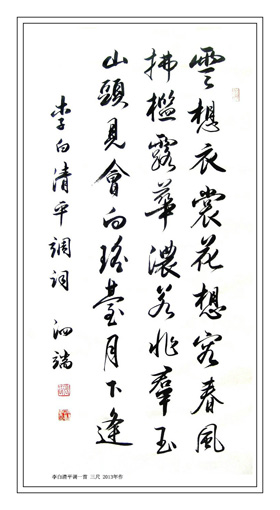 雲想衣裳花想容春風
拂檻露華濃若非羣玉
山頭見會向瑤臺月下逢
李白清平調詞 泗端
李白清平调一首 三尺 2013年作